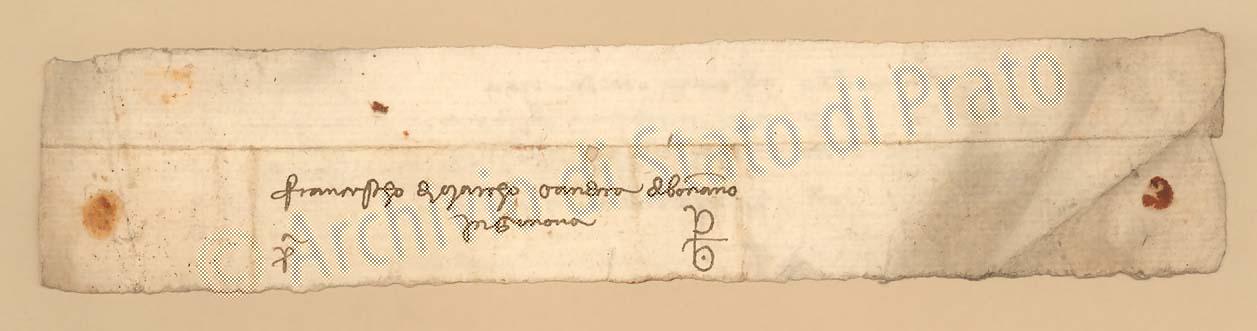 francescho di marcho eandrea di bonano
in genova
© Archivio di Stato di Prato